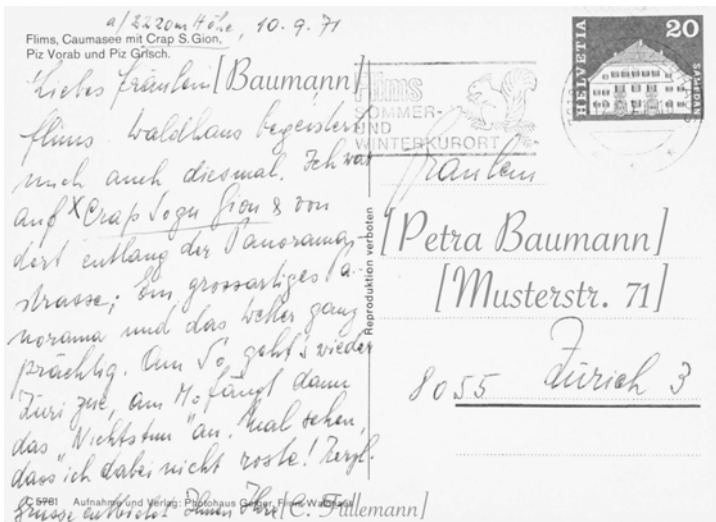 a/2220m Höhe, 10.9.71
Flims, Caumasee mit Crap S. Gion,
Piz Vorab und Piz Grisch.
Liebes Fräulein [Baumann]
Flims-Waldhaus begeistert
mich auch diesmal. Ich war
auf x Crap Sogn Gion & von
dort entlang der Panorama-
strasse; Ein grossartiges Pa-
norama und das Wetter ganz
prächtig. Am So. geht's wieder
Züri zue, am Mo fängt dann
das "Nichtstun" an. Mal sehen,
dass ich dabei nicht roste! Herzl.
Grüsse entbietet Ihnen Ihre [C. Füllemann]
C 5781 Aufnahme und Verlag: Photohaus Geiger, Flims-Waldhaus
Reproduktion verboten
Flims
SOMMER-
UND
WINTERKURORT
HELVETIA
20
SAMEDAN
Fräulein
[Petra Baumann]
[Musterstr. 71]
8055 Zürich 3